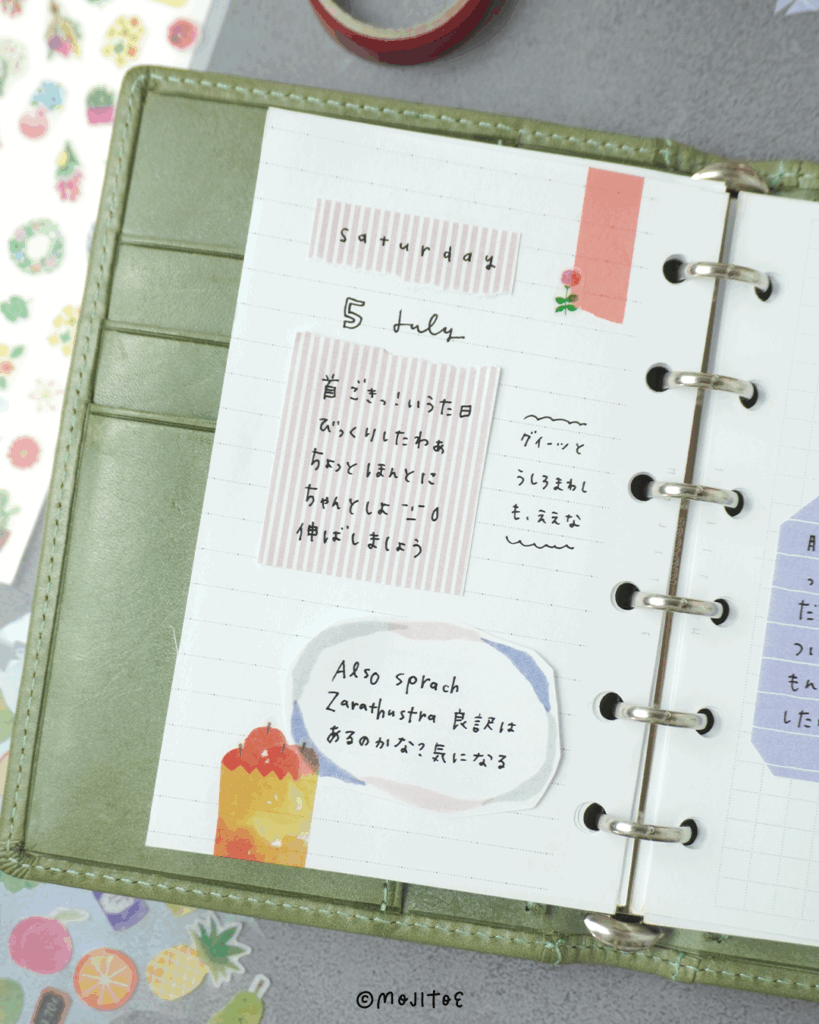 saturday
5 July
首ごきっ!いうた日
びっくりしたわぁ
ちょっとほんとに
ちゃんとしよ
伸ばしましょう
グイーッと
うしろまわし
も、ええな
Also sprach
Zarathustra 良訳は
あるのかな?気になる
だ
つい
もん
した
©MOJITOE